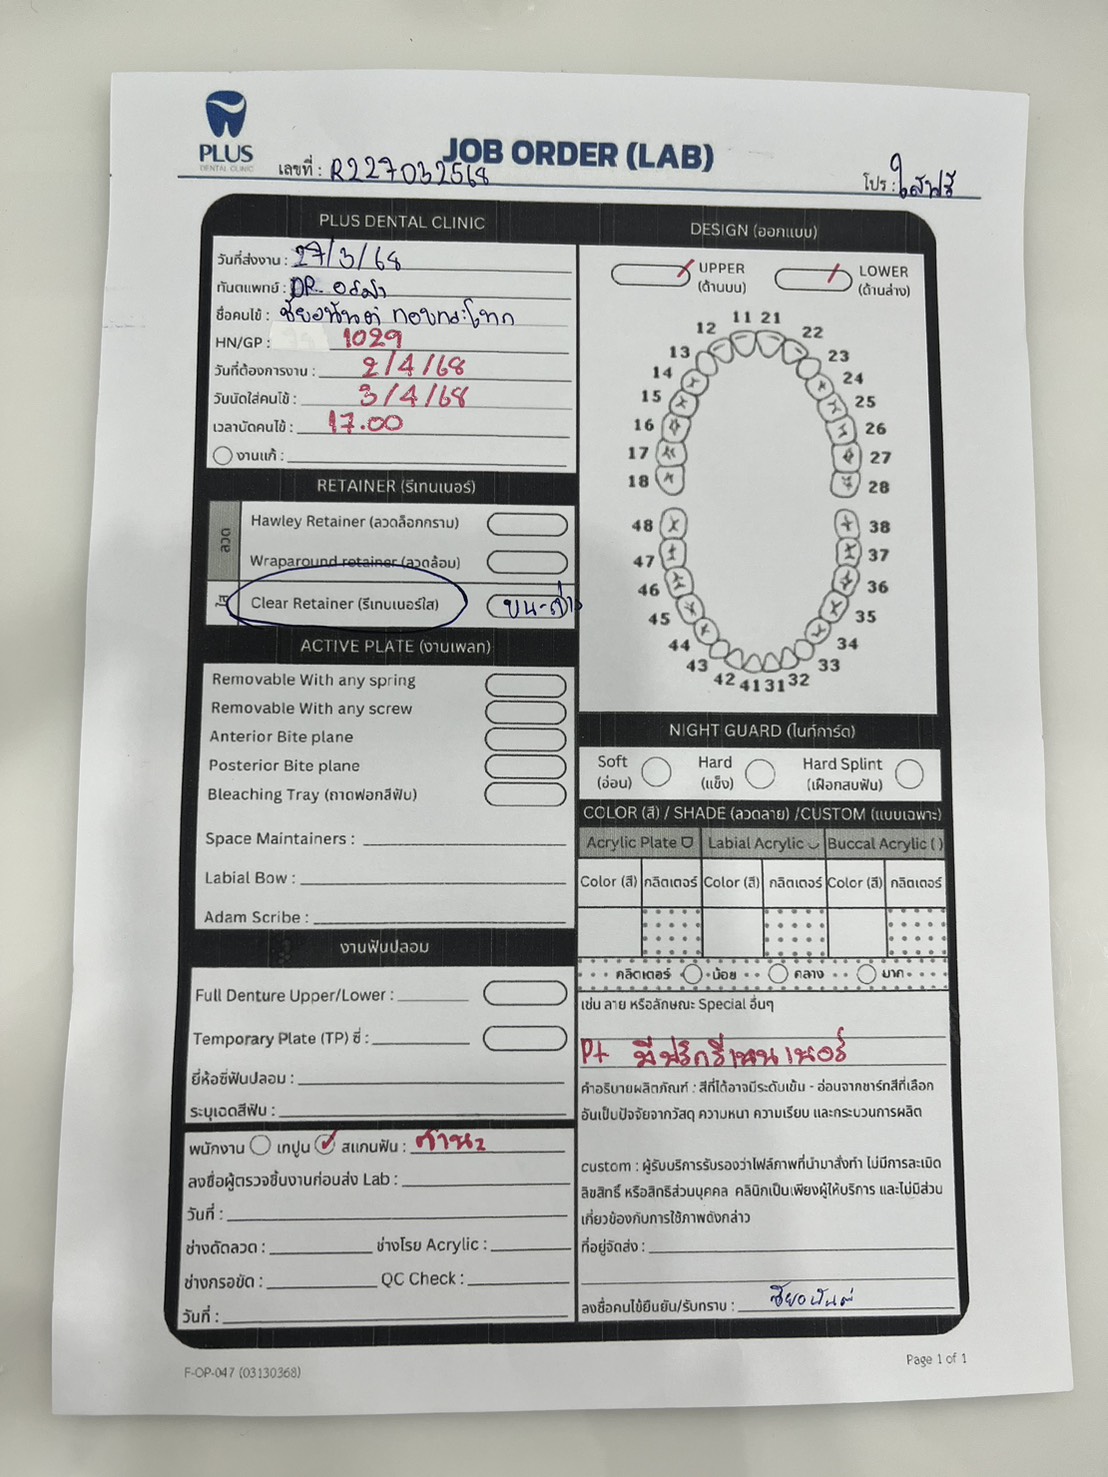 PLUS
DENTAL CLINIC
JOB ORDER (LAB)
เลขที่ : R227032568
โปร : ใสฟรี
PLUS DENTAL CLINIC
วันที่ส่งงาน : 27/3/68
ทันตแพทย์ : DR.
ชื่อคนไข้ :
HN/GP : 1029
วันที่ต้องการงาน : 2/4/68
วันนัดใส่คนไข้ : 3/4/68
เวลานัดคนไข้ : 17.00
งานแก้ :
RETAINER (รีเทนเนอร์)
ลวด
Hawley Retainer (ลวดล็อกกราม)
Wraparound retainer (ลวดล้อม)
ใส
Clear Retainer (รีเทนเนอร์ใส) บน-ล่าง
ACTIVE PLATE (งานเพลท)
Removable With any spring
Removable With any screw
Anterior Bite plane
Posterior Bite plane
Bleaching Tray (ถาดฟอกสีฟัน)
Space Maintainers :
Labial Bow :
Adam Scribe :
งานฟันปลอม
Full Denture Upper/Lower :
Temporary Plate (TP) ซี่ :
ยี่ห้อซี่ฟันปลอม :
ระบุเฉดสีฟัน :
พนักงาน เทปูน สแกนฟัน :
ลงชื่อผู้ตรวจชิ้นงานก่อนส่ง Lab :
วันที่ :
ช่างดัดลวด : ช่างโรย Acrylic :
ช่างกรอขัด : QC Check :
วันที่ :
DESIGN (ออกแบบ)
UPPER
(ด้านบน)
LOWER
(ด้านล่าง)
11 21
12 22
13 23
14 24
15 25
16 26
17 27
18 28
48 38
47 37
46 36
45 35
44 34
43 33
42 41 31 32
NIGHT GUARD (ไนท์การ์ด)
Soft
(อ่อน)
Hard
(แข็ง)
Hard Splint
(เฝือกสบฟัน)
COLOR (สี) / SHADE (ลวดลาย) /CUSTOM (แบบเฉพาะ)
Acrylic Plate Labial Acrylic Buccal Acrylic ( )
Color (สี) กลิตเตอร์ Color (สี) กลิตเตอร์ Color (สี) กลิตเตอร์
กลิตเตอร์ น้อย กลาง มาก
เช่น ลาย หรือลักษณะ Special อื่นๆ
Pt มีฟรีรีเทนเนอร์
คำอธิบายผลิตภัณฑ์ : สีที่ได้อาจมีระดับเข้ม - อ่อนจากชาร์ทสีที่เลือก
อันเป็นปัจจัยจากวัสดุ ความหนา ความเรียบ และกระบวนการผลิต
custom : ผู้รับบริการรับรองว่าไฟล์ภาพที่นำมาสั่งทำ ไม่มีการละเมิด
ลิขสิทธิ์ หรือสิทธิส่วนบุคคล คลินิกเป็นเพียงผู้ให้บริการ และไม่มีส่วน
เกี่ยวข้องกับการใช้ภาพดังกล่าว
ที่อยู่จัดส่ง :
ลงชื่อคนไข้ยืนยัน/รับทราบ :
F-OP-047 (03130368)
Page 1 of 1